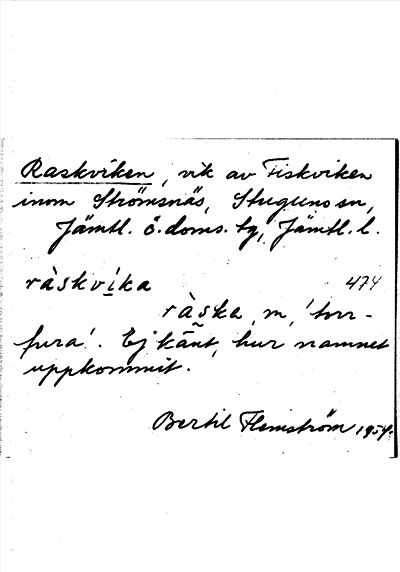 Raskviken, vik av Fiskviken
inom Strömsnäs, Stuguns sn,
Jämtl. ö. doms. tg, Jämtl. l.
ràskvika 474
ràska, m, 'torr-
fura'. Ej känt, hur namnet
uppkommit.
Bertil Flemström 1954.